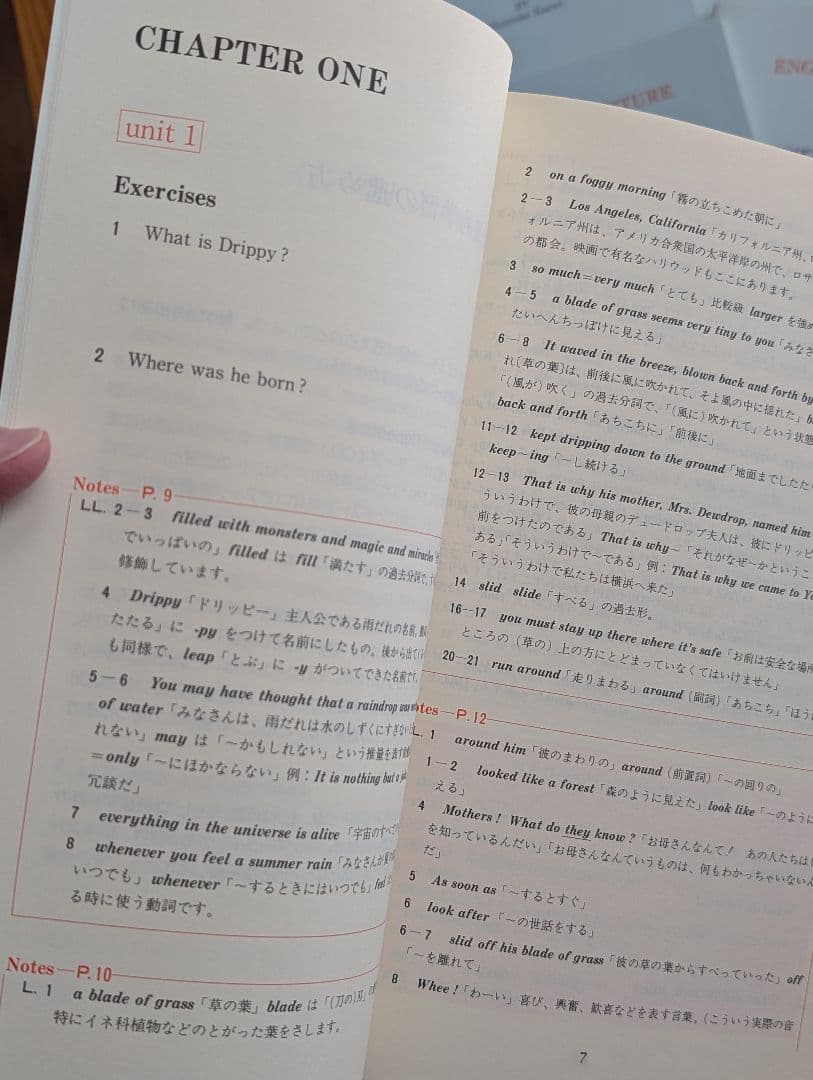 CHAPTER ONE
unit 1
Exercises
1 What is Drippy?
2 Where was he born?
Notes—P. 9
LL. 2－3 filled with monsters and magic and miracles
でいっぱいの」filled は fill「満たす」の過去分詞で、
修飾しています。
4 Drippy「ドリッピー」主人公である雨だれの名前。
たたる」に -py をつけて名前にしたもの。後から出て
も同様で、leap「とぶ」に -y がついてできた名前です。
5－6 You may have thought that a raindrop was
of water「みなさんは、雨だれは水のしずくにすぎない
れない」may は「～かもしれない」という推量を表す
＝only「～にほかならない」例：It is nothing but a
冗談だ」
7 everything in the universe is alive「宇宙のすべて
8 whenever you feel a summer rain「みなさんが
いつでも」whenever「～するときにはいつでも」feel
る時に使う動詞です。
Notes—P.10
L. 1 a blade of grass「草の葉」blade は「(刀の)刃」
特にイネ科植物などのとがった葉をさします。
2 on a foggy morning「霧の立ちこめた朝に」
2－3 Los Angeles, California「カリフォルニア州、ロ
ォルニア州は、アメリカ合衆国の太平洋岸の州で、ロサ
の都会。映画で有名なハリウッドもここにあります。
3 so much＝very much「とても」比較級 larger を強め
4－5 a blade of grass seems very tiny to you「みなさ
たいへんちっぽけに見える」
6－8 It waved in the breeze, blown back and forth by
れ〔草の葉〕は、前後に風に吹かれて、そよ風の中に揺れた」
「(風が) 吹く」の過去分詞で、「(風に) 吹かれて」という状態
back and forth「あちこちに」「前後に」
11－12 kept dripping down to the ground「地面までしたた
keep～ing「～し続ける」
12－13 That is why his mother, Mrs. Dewdrop, named him
ういうわけで、彼の母親のデュードロップ夫人は、彼にドリッピ
前をつけたのである」That is why～「それがなぜ～かというこ
ある」「そういうわけで～である」例：That is why we came to Yo
「そういうわけで私たちは横浜へ来た」
14 slid slide「すべる」の過去形。
16－17 you must stay up there where it's safe「お前は安全な場所
ところの (草の) 上の方にとどまっていなくてはいけません」
20－21 run around「走りまわる」around (副詞)「あちこち」「ほう
otes—P.12
L. 1 around him「彼のまわりの」around (前置詞)「～の回りの」
1－2 looked like a forest「森のように見えた」look like「～のように
える」
4 Mothers! What do they know?「お母さんなんて！ あの人たちは
を知っているんだい」「お母さんなんていうものは、何もわかっちゃいないん
だ」
5 As soon as「～するとすぐ」
6 look after「～の世話をする」
6－7 slid off his blade of grass「彼の草の葉からすべっていった」off
「～を離れて」
8 Whee!「わーい」喜び、興奮、歓喜などを表す言葉。(こういう実際の音
7
ENG